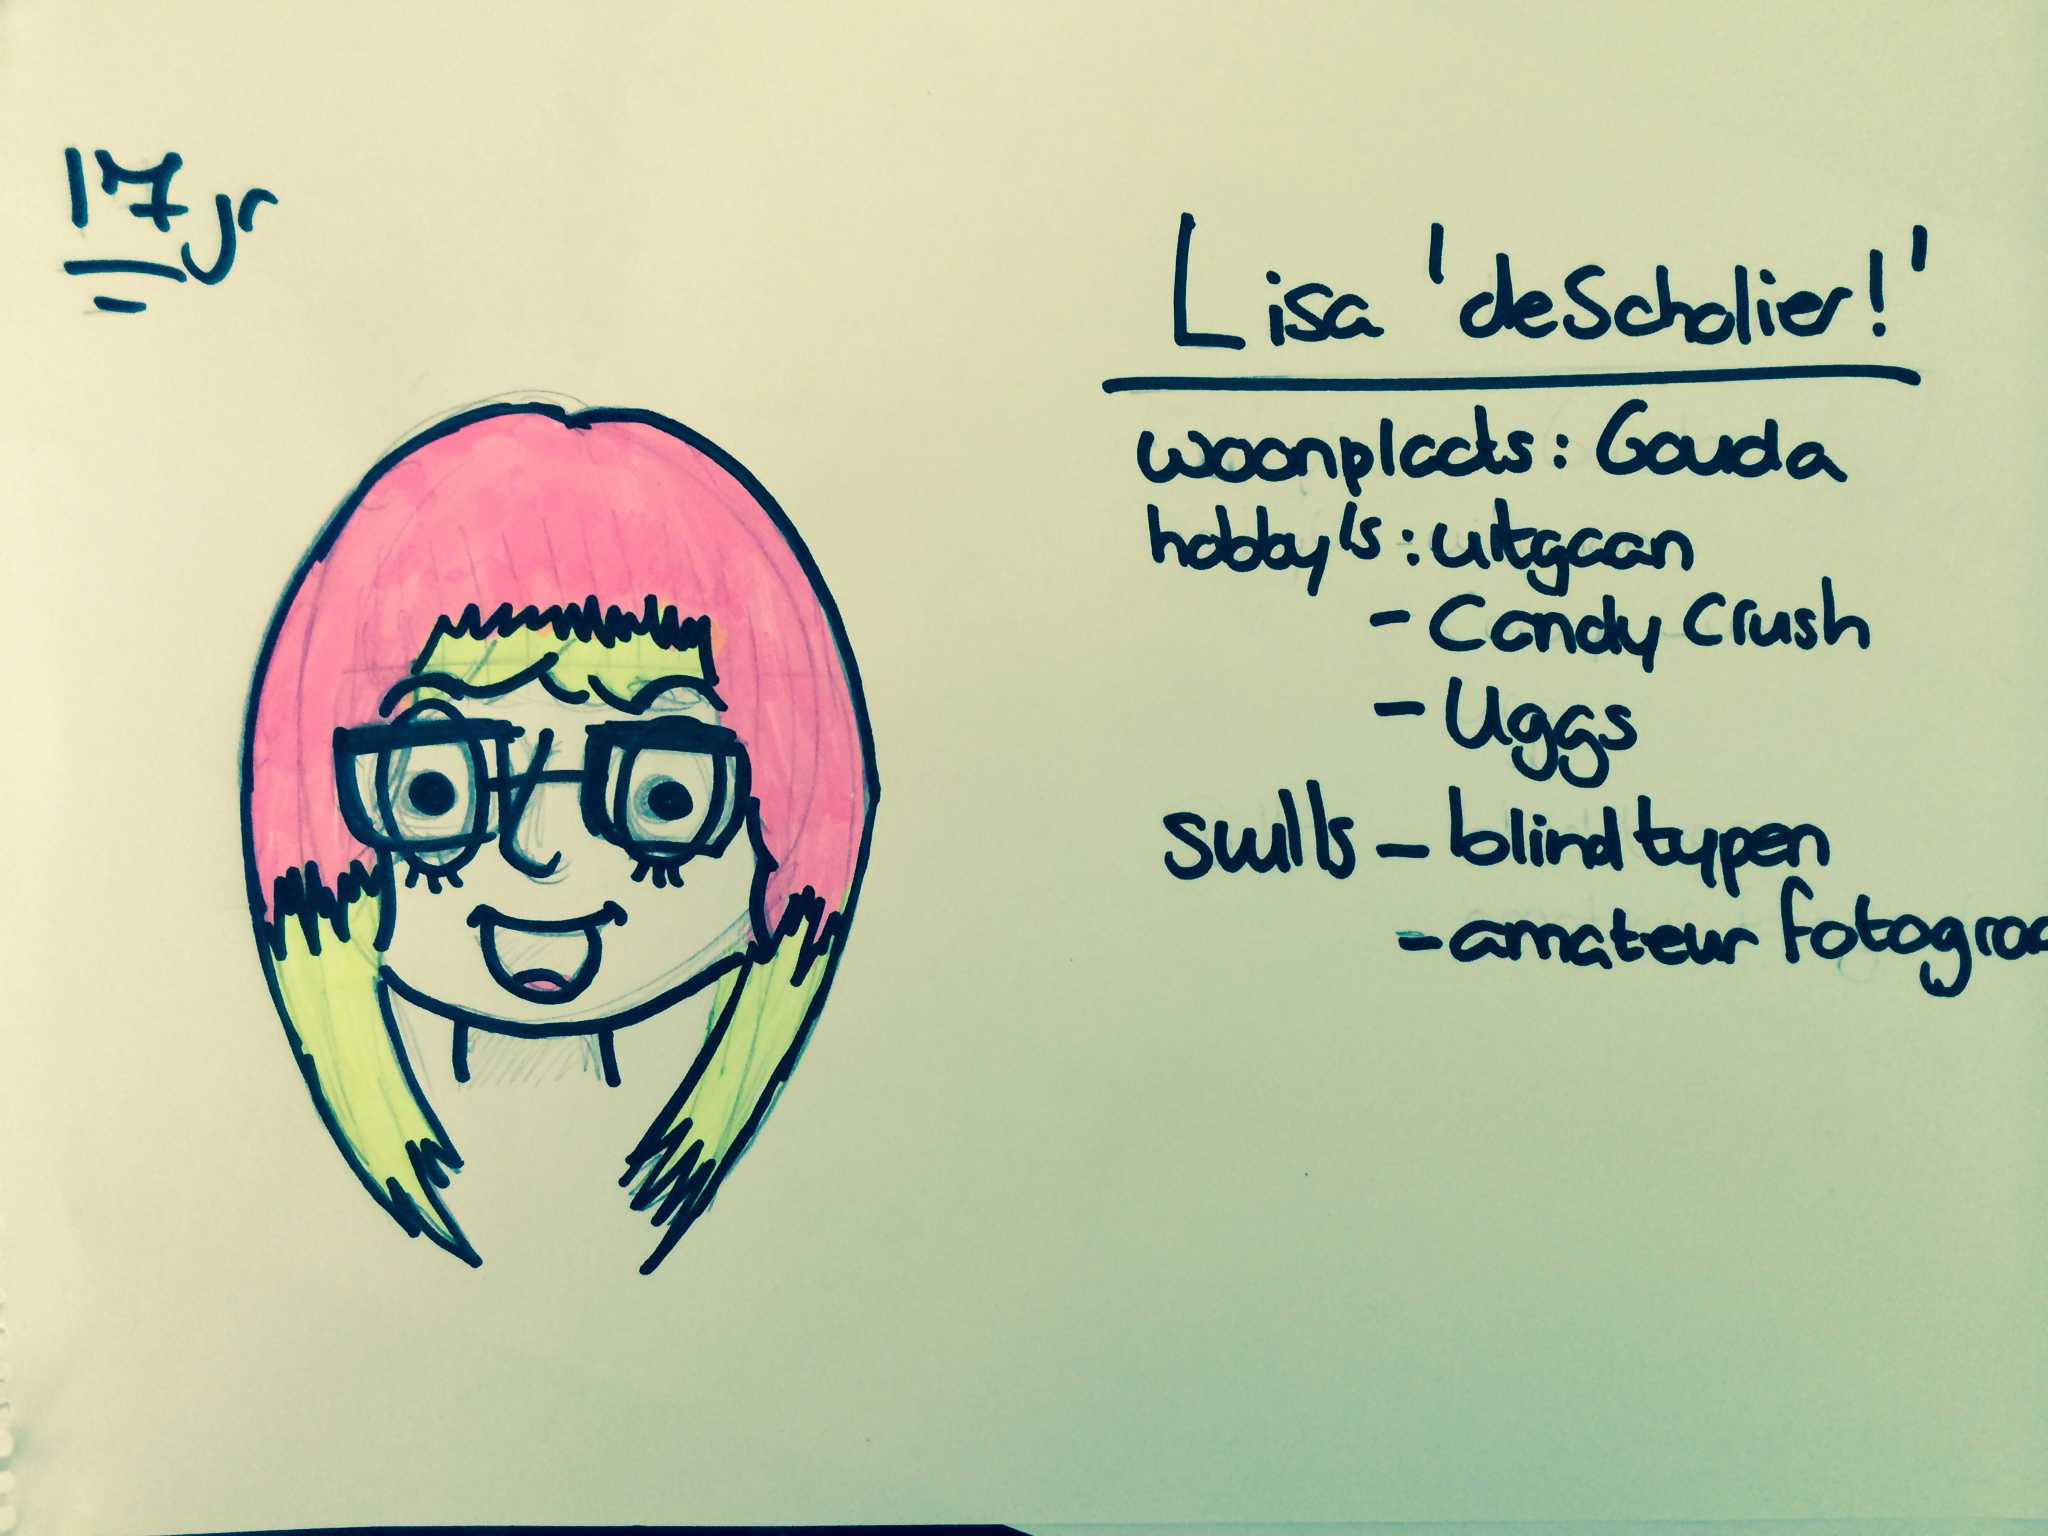 17 jr
Lisa 'de Scholier!'
woonplaats: Gouda
hobby's: uitgaan
- Candy Crush
- Uggs
skills - blind typen
- amateur fotograa